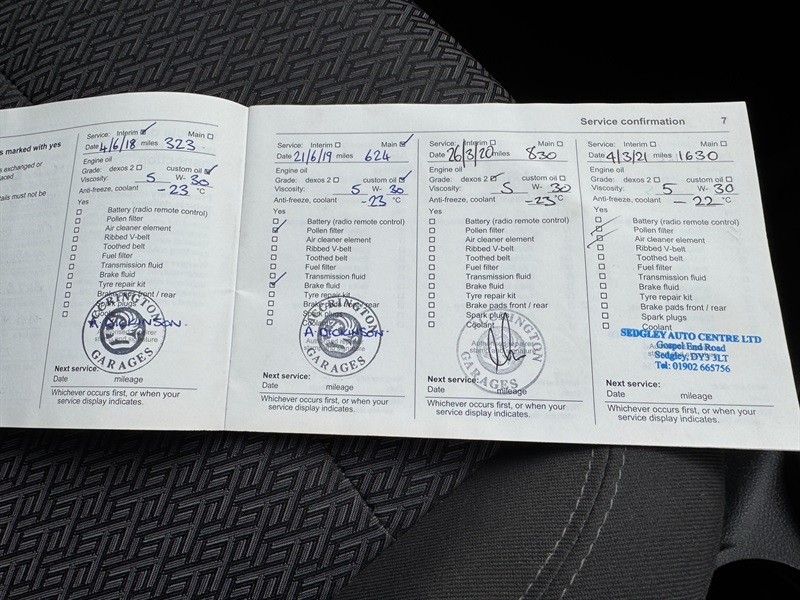 s marked with yes
exchanged or
laced
tails must not be
Service: Interim ☑ Main ☐
Date 4/6/18 miles 323
Engine oil
Grade: dexos 2 ☐ custom oil ☑
Viscosity: 5 W- 30
Anti-freeze, coolant -23 °C
Yes
☐ Battery (radio remote control)
☐ Pollen filter
☐ Air cleaner element
☐ Ribbed V-belt
☐ Toothed belt
☐ Fuel filter
☐ Transmission fluid
☐ Brake fluid
☐ Tyre repair kit
☐ Brake pads front / rear
☐ Spark plugs
☐ Coolant
A DICKINSON
GARAGES
Next service:
Date mileage
Whichever occurs first, or when your
service display indicates.
Service confirmation 7
Service: Interim ☐ Main ☑
Date 21/6/19 miles 624
Engine oil
Grade: dexos 2 ☐ custom oil ☑
Viscosity: 5 W- 30
Anti-freeze, coolant -23 °C
Yes
☐ Battery (radio remote control)
☑ Pollen filter
☐ Air cleaner element
☐ Ribbed V-belt
☐ Toothed belt
☐ Fuel filter
☐ Transmission fluid
☑ Brake fluid
☐ Tyre repair kit
☐ Brake pads front / rear
☐ Spark plugs
☐ Coolant
A DICKINSON
GARAGES
Next service:
Date mileage
Whichever occurs first, or when your
service display indicates.
Service: Interim ☐ Main ☐
Date 26/3/20 miles 830
Engine oil
Grade: dexos 2 ☑ custom oil ☐
Viscosity: 5 W- 30
Anti-freeze, coolant -23 °C
Yes
☐ Battery (radio remote control)
☐ Pollen filter
☐ Air cleaner element
☐ Ribbed V-belt
☐ Toothed belt
☐ Fuel filter
☐ Transmission fluid
☐ Brake fluid
☐ Tyre repair kit
☐ Brake pads front / rear
☐ Spark plugs
☐ Coolant
GARAGES
Next service:
Date mileage
Whichever occurs first, or when your
service display indicates.
Service: Interim ☐ Main ☐
Date 4/3/21 miles 1630
Engine oil
Grade: dexos 2 ☐ custom oil ☐
Viscosity: 5 W- 30
Anti-freeze, coolant - 22 °C
Yes
☐ Battery (radio remote control)
☑ Pollen filter
☑ Air cleaner element
☐ Ribbed V-belt
☐ Toothed belt
☐ Fuel filter
☐ Transmission fluid
☐ Brake fluid
☐ Tyre repair kit
☐ Brake pads front / rear
☐ Spark plugs
☐ Coolant
SEDGLEY AUTO CENTRE LTD
Gospel End Road
Sedgley, DY3 3LT
Tel: 01902 665756
Next service:
Date mileage
Whichever occurs first, or when your
service display indicates.